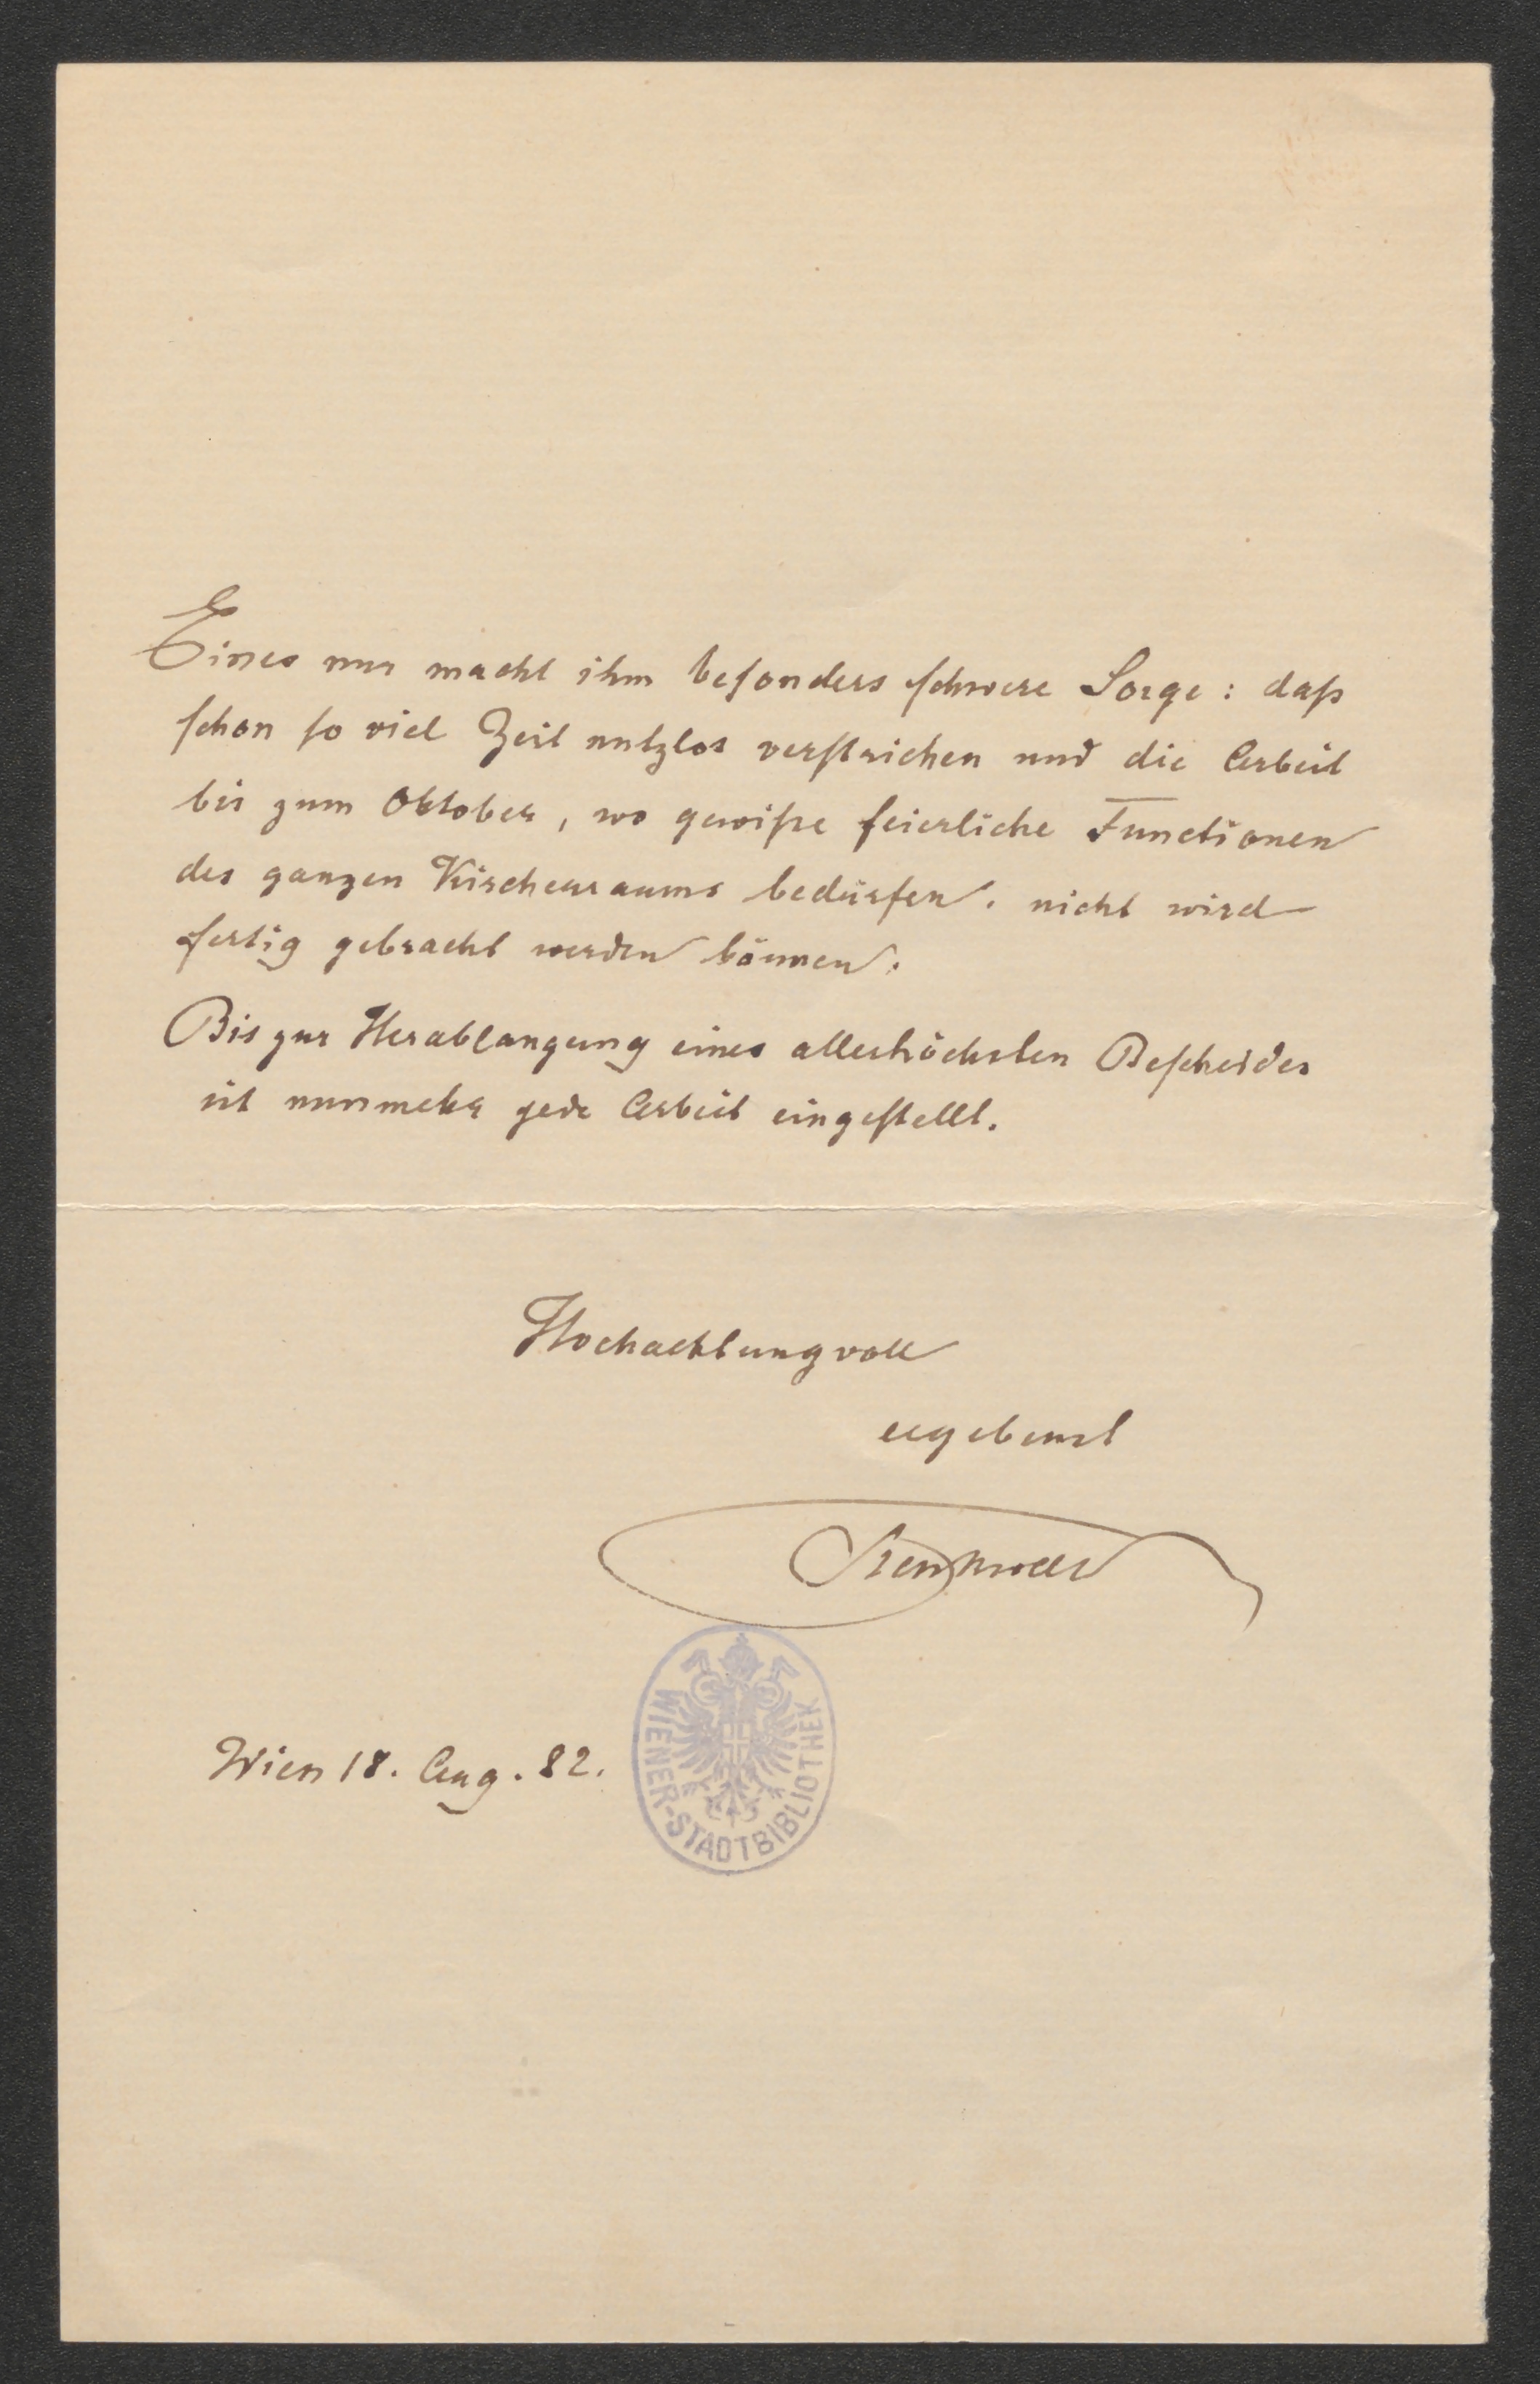 Eines nur macht ihm besonders schwere Sorge: daß
schon so viel Zeit nutzlos verstrichen und die Arbeit
bis zum Oktober, wo gewiße feierliche Functionen
des ganzen Kirchenraums bedürfen, nicht wird
fertig gebracht werden können.
Bis zur Herablangung eines allerhöchsten Bescheides
ist nunmehr jede Arbeit eingestellt.
Hochachtungvoll
ergebenst
Trenkwald
Wien 18. Aug. 82.
WIENER-STADTBIBLIOTHEK